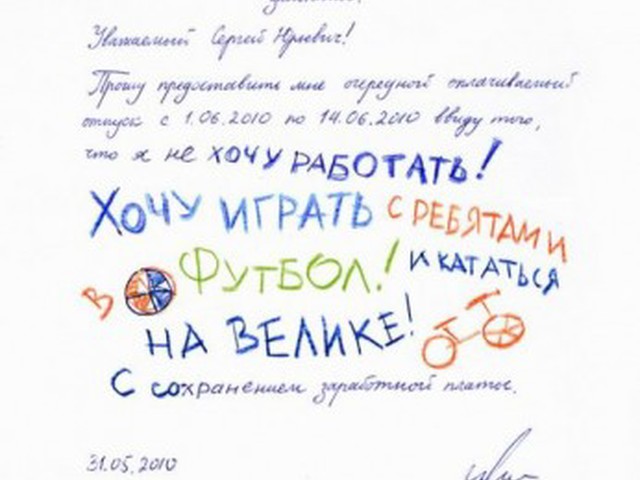 Уважаемый Сергей Юрьевич!
Прошу предоставить мне очередной оплачиваемый
отпуск с 1.06.2010 по 14.06.2010 ввиду того,
что я не ХОЧУ РАБОТАТЬ!
ХОЧУ ИГРАТЬ С РЕБЯТАМИ
В ФУТБОЛ! И КАТАТЬСЯ
НА ВЕЛИКЕ!
С сохранением заработной платы.
31.05.2010